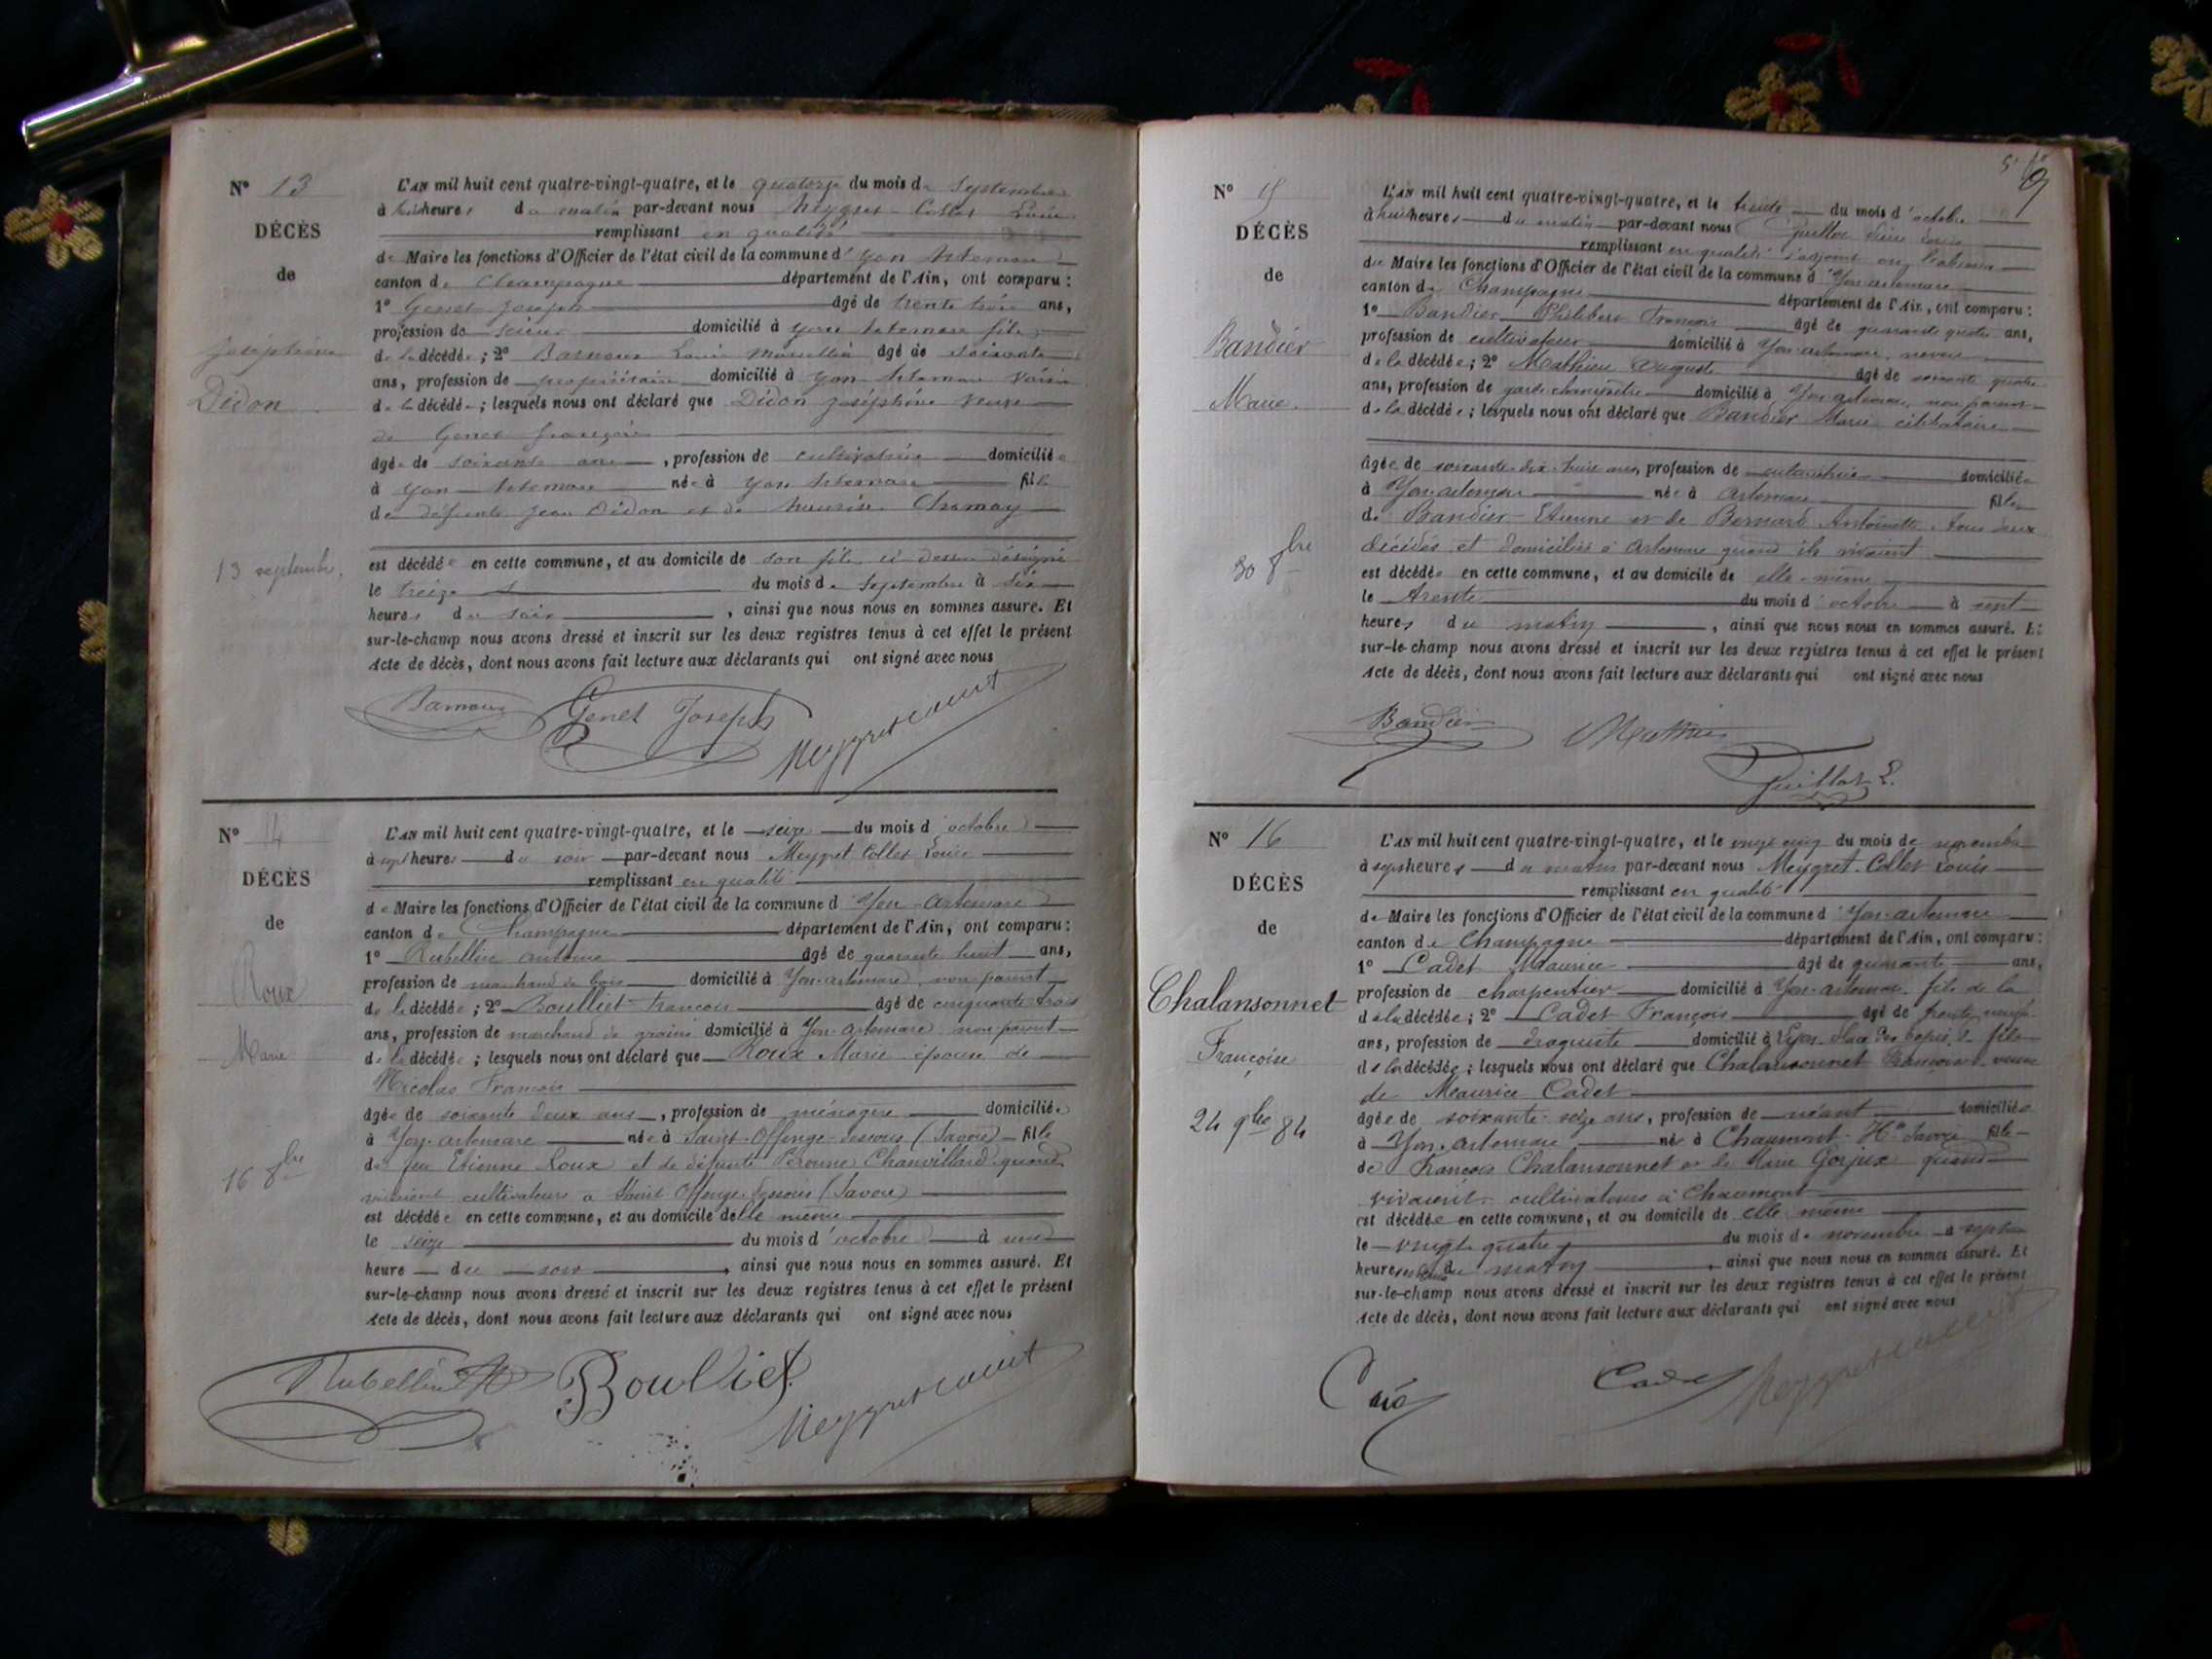 N° 13
DÉCÈS
de
Joséphine
Didon
13 septembre
L'AN mil huit cent quatre-vingt-quatre, et le quatorze du mois de septembre
à huit heures du matin par-devant nous Meygret-Collet Louis
remplissant en qualité
de Maire les fonctions d'Officier de l'état civil de la commune d'Yon Artemare
canton de Champagne département de l'Ain, ont comparu :
1° Genet Joseph âgé de trente trois ans,
profession de domicilié à Yon Artemare fils
de la décédée ; 2° Louis Marcellin âgé de soixante
ans, profession de propriétaire domicilié à Yon Artemare voisin
de la décédée ; lesquels nous ont déclaré que Didon Joséphine veuve
de Genet François
âgée de soixante ans, profession de cultivatrice domiciliée
à Yon Artemare née à Yon Artemare fille
de défunts Jean Didon et de Chamay
est décédée en cette commune, et au domicile de son fils ci-dessus désigné
le treize du mois de septembre à six
heures du soir, ainsi que nous nous en sommes assuré. Et
sur-le-champ nous avons dressé et inscrit sur les deux registres tenus à cet effet le présent
Acte de décès, dont nous avons fait lecture aux déclarants qui ont signé avec nous
Genet Joseph Meygret Collet
N° 14
DÉCÈS
de
Roux
Marie
16 8bre
L'AN mil huit cent quatre-vingt-quatre, et le seize du mois d'octobre
à sept heures du soir par-devant nous Meygret Collet Louis
remplissant en qualité
de Maire les fonctions d'Officier de l'état civil de la commune d'Yon-Artemare
canton de Champagne département de l'Ain, ont comparu :
1° Rubellin Antoine âgé de quarante huit ans,
profession de marchand de bois domicilié à Yon-artemare, non parent
de la décédée ; 2° Boulliet François âgé de cinquante trois
ans, profession de marchand de grains domicilié à Yon-Artemare non parent
de la décédée ; lesquels nous ont déclaré que Roux Marie épouse de
Nicolas François
âgée de soixante deux ans, profession de ménagère domiciliée
à Yon-artemare née à Saint-Offenge-Dessous (Savoie) fille
de feu Etienne Roux et de défunte Péronne Chanvillard quand
vivaient cultivateurs à Saint Offenge-Dessous (Savoie)
est décédée en cette commune, et au domicile d'elle même
le seize du mois d'octobre à une
heure du soir, ainsi que nous nous en sommes assuré. Et
sur-le-champ nous avons dressé et inscrit sur les deux registres tenus à cet effet le présent
Acte de décès, dont nous avons fait lecture aux déclarants qui ont signé avec nous
Rubellin Boulliet Meygret Collet
9
N° 15
DÉCÈS
de
Bandier
Marie
30 8bre
L'AN mil huit cent quatre-vingt-quatre, et le trente du mois d'octobre
à huit heures du matin par-devant nous Guillot
remplissant en qualité d'adjoint
du Maire les fonctions d'Officier de l'état civil de la commune d'Yon-artemare
canton de Champagne département de l'Ain, ont comparu :
1° Bandier Philibert François âgé de quarante quatre ans,
profession de cultivateur domicilié à Yon-artemare, neveu
de la décédée ; 2° Mathieu Auguste âgé de soixante quatre
ans, profession de garde champêtre domicilié à Yon-artemare, non parent
de la décédée ; lesquels nous ont déclaré que Bandier Marie célibataire
âgée de soixante-dix-huit ans, profession de cultivatrice domiciliée
à Yon-artemare née à Artemare fille
de Bandier Etienne et de Bernard Antoinette, tous deux
décédés et domiciliés à Artemare quand ils vivaient
est décédée en cette commune, et au domicile de elle-même
le trente du mois d'octobre à sept
heures du matin, ainsi que nous nous en sommes assuré. Et
sur-le-champ nous avons dressé et inscrit sur les deux registres tenus à cet effet le présent
Acte de décès, dont nous avons fait lecture aux déclarants qui ont signé avec nous
Bandier Mathieu
Guillot L.
N° 16
DÉCÈS
de
Chalansonnet
Françoise
24 9bre 84
L'AN mil huit cent quatre-vingt-quatre, et le vingt cinq du mois de novembre
à sept heures du matin par-devant nous Meygret-Collet Louis
remplissant en qualité
de Maire les fonctions d'Officier de l'état civil de la commune d'Yon-artemare
canton de Champagne département de l'Ain, ont comparu :
1° Cadet Maurice âgé de quarante ans,
profession de charpentier domicilié à Yon-artemare, fils de la
de la décédée ; 2° Cadet François âgé de trente neuf
ans, profession de droguiste domicilié à Lyon, fils
de la décédée ; lesquels nous ont déclaré que Chalansonnet Françoise, veuve
de Maurice Cadet
âgée de soixante-seize ans, profession de néant domiciliée
à Yon-Artemare née à Chaumont Hte Savoie fille
de François Chalansonnet et de Marie Gorjux quand
vivaient cultivateurs à Chaumont
est décédée en cette commune, et au domicile de elle même
le vingt quatre du mois de novembre à sept
heures du matin, ainsi que nous nous en sommes assuré. Et
sur-le-champ nous avons dressé et inscrit sur les deux registres tenus à cet effet le présent
Acte de décès, dont nous avons fait lecture aux déclarants qui ont signé avec nous
Cadet Meygret Collet